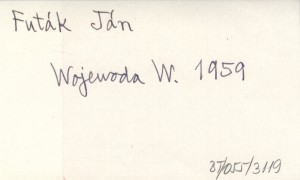 Futák Ján
Wojewoda W. 1959
87/055/3119